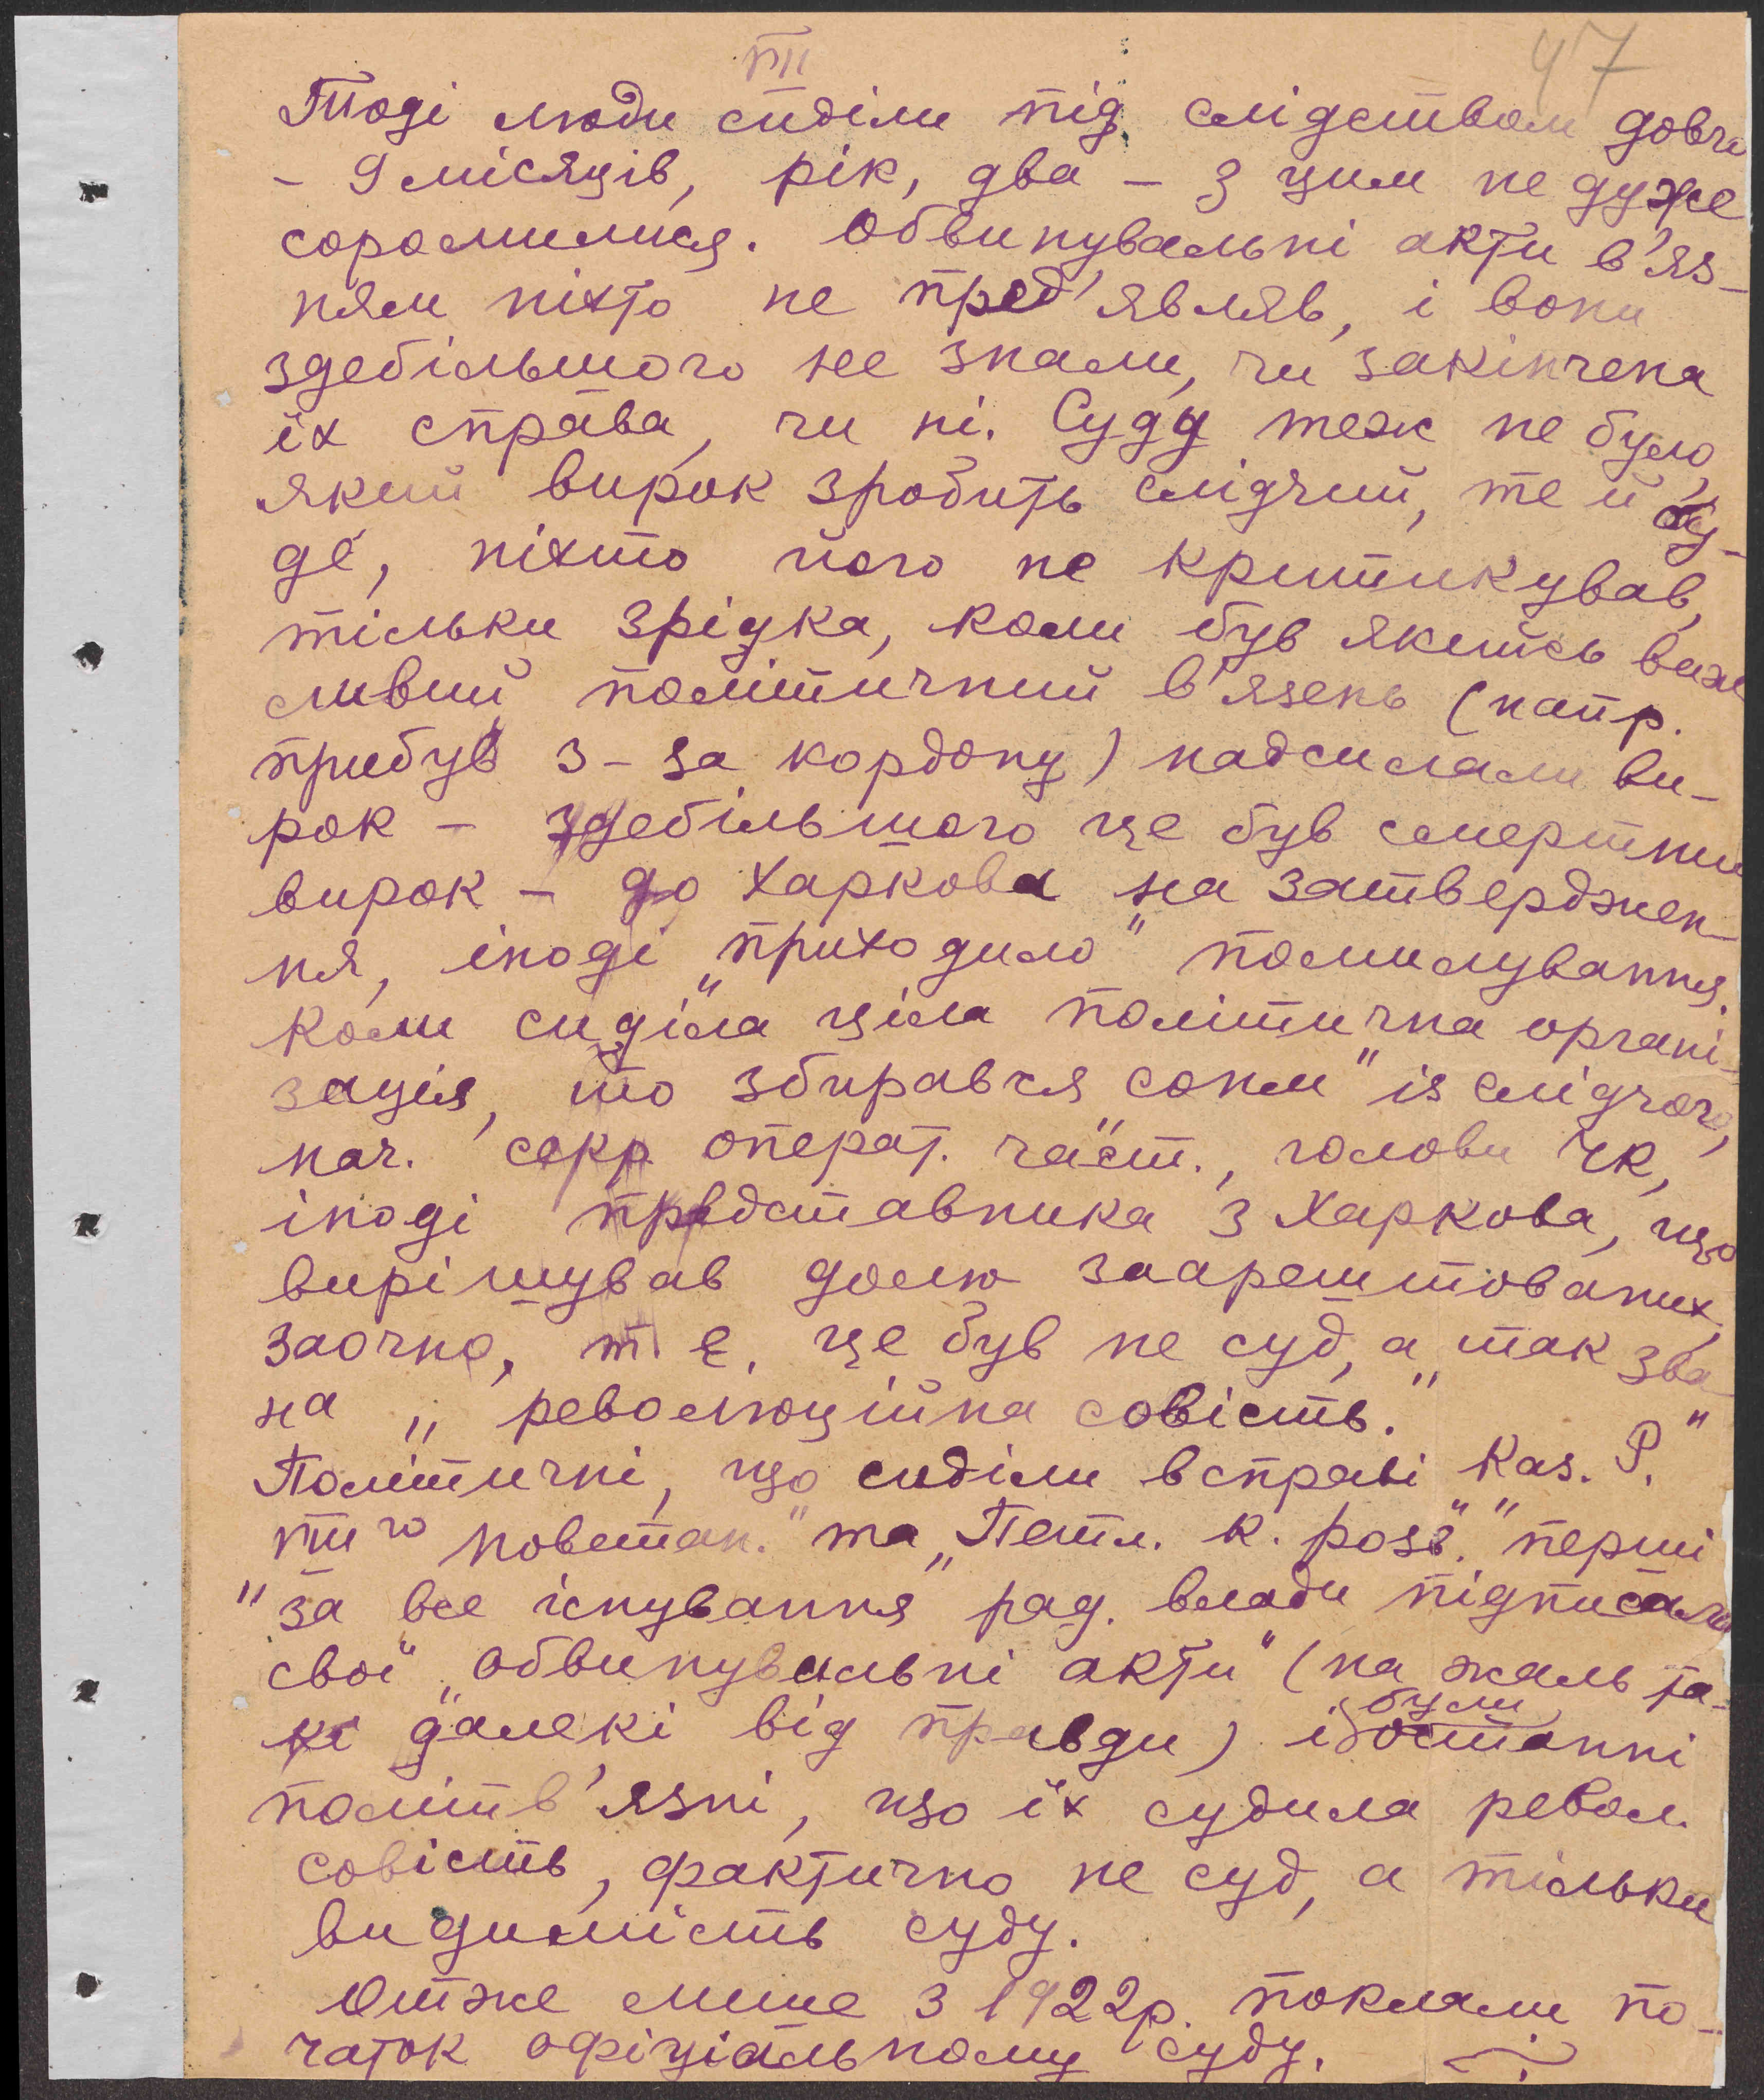 47
Тоді люди сиділи під слідством довго
– 9 місяців, рік, два – з цим не дуже
соромилися. Обвинувальні акти в'яз-
ням ніхто не пред'являв, і вони
здебільшого не знали, чи закінчена
їх справа, чи ні. Суду теж не було,
який вирок зробить слідчий, те й бу-
де, ніхто його не критикував,
тільки зрідка, коли був якийсь важ
ливий політичний в'язень (напр.
прибув з-за кордону) надсилали ви-
рок – здебільшого це був смертний
вирок – до Харкова на затверджен-
ня, іноді „приходило" помилування.
Коли сиділа ціла політична органі-
зація, то збирався „сонм" із слідчого,
нач. секр. операт. част., голови ЧК,
іноді представника з Харкова, що
вирішував долю заарештованих,
заочно, т. є. це був не суд, а так зва-
на „революційна совість."
Політичні, що сиділи в справі Каз. Р."
"повстан." та „Петл. К. розв." перші
"за все існування рад. влади підписали
свої „обвинувальні акти" (на жаль та-
кі далекі від правди) і були останні
політв'язні, що їх судила револ.
совість, фактично не суд, а тільки
видимість суду.
Отже лише з 1922р. поклали по-
чаток офіціальному суду.